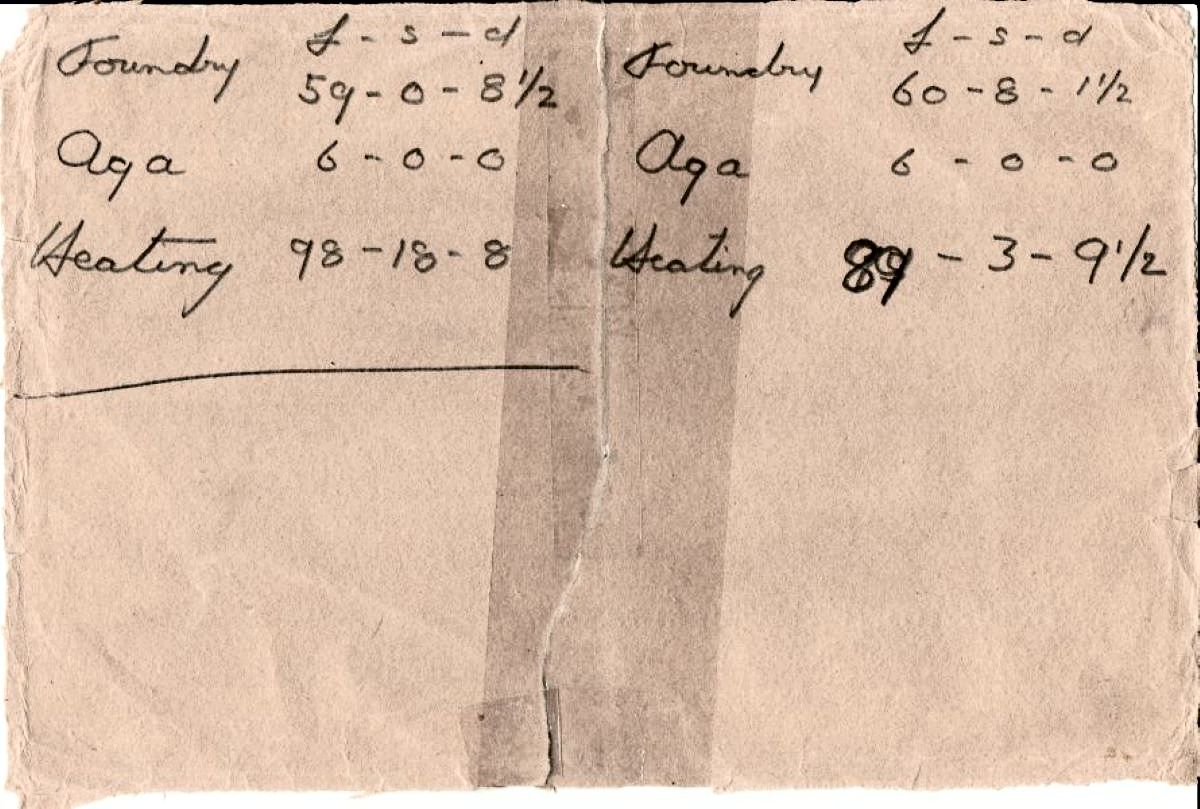 £ - s - d
Foundry 59 - 0 - 8 1/2
Aga 6 - 0 - 0
Heating 98 - 18 - 8
£ - s - d
Foundry 60 - 8 - 1 1/2
Aga 6 - 0 - 0
Heating 89 - 3 - 9 1/2